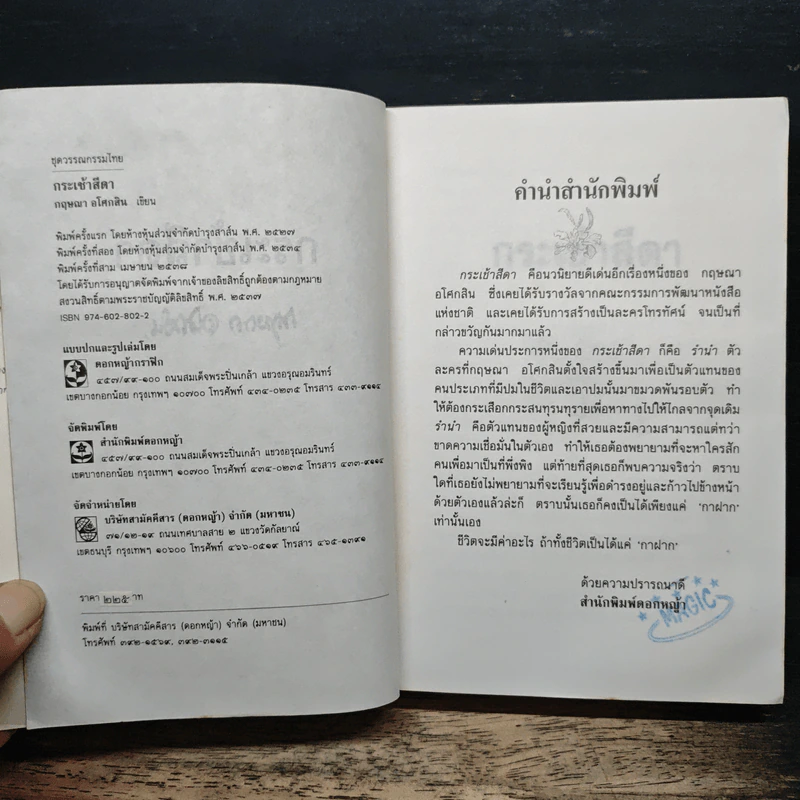 ชุดวรรณกรรมไทย
กระเช้าสีดา
กฤษณา อโศกสิน เขียน
พิมพ์ครั้งแรก โดยห้างหุ้นส่วนจำกัดบำรุงสาส์น พ.ศ. ๒๕๒๗
พิมพ์ครั้งที่สอง โดยห้างหุ้นส่วนจำกัดบำรุงสาส์น พ.ศ. ๒๕๓๔
พิมพ์ครั้งที่สาม เมษายน ๒๕๓๘
โดยได้รับการอนุญาตจัดพิมพ์จากเจ้าของลิขสิทธิ์ถูกต้องตามกฎหมาย
สงวนสิทธิ์ตามพระราชบัญญัติลิขสิทธิ์ พ.ศ. ๒๕๓๗
ISBN 974-602-802-2
แบบปกและรูปเล่มโดย
ดอกหญ้ากราฟิก
๔๕๗/๙๙-๑๐๐ ถนนสมเด็จพระปิ่นเกล้า แขวงอรุณอมรินทร์
เขตบางกอกน้อย กรุงเทพฯ ๑๐๗๐๐ โทรศัพท์ ๔๓๔-๐๒๓๕ โทรสาร ๔๓๓-๙๑๑๔
จัดพิมพ์โดย
สำนักพิมพ์ดอกหญ้า
๔๕๗/๙๙-๑๐๐ ถนนสมเด็จพระปิ่นเกล้า แขวงอรุณอมรินทร์
เขตบางกอกน้อย กรุงเทพฯ ๑๐๗๐๐ โทรศัพท์ ๔๓๔-๐๒๓๕ โทรสาร ๔๓๓-๙๑๑๔
จัดจำหน่ายโดย
บริษัทสามัคคีสาร (ดอกหญ้า) จำกัด (มหาชน)
๗๑/๑๒-๑๙ ถนนเทศบาลสาย ๒ แขวงวัดกัลยาณ์
เขตธนบุรี กรุงเทพฯ ๑๐๖๐๐ โทรศัพท์ ๔๖๖-๐๕๑๙ โทรสาร ๔๖๕-๑๓๙๑
ราคา ๒๒๕ บาท
พิมพ์ที่ บริษัทสามัคคีสาร (ดอกหญ้า) จำกัด (มหาชน)
โทรศัพท์ ๓๙๒-๑๕๖๙, ๓๙๒-๓๑๑๕
คำนำสำนักพิมพ์
กระเช้าสีดา คือนวนิยายดีเด่นอีกเรื่องหนึ่งของ กฤษณา
อโศกสิน ซึ่งเคยได้รับรางวัลจากคณะกรรมการพัฒนาหนังสือ
แห่งชาติ และเคยได้รับการสร้างเป็นละครโทรทัศน์ จนเป็นที่
กล่าวขวัญกันมากมาแล้ว
ความเด่นประการหนึ่งของ กระเช้าสีดา ก็คือ รำนำ ตัว
ละครที่กฤษณา อโศกสิน ตั้งใจสร้างขึ้นมาเพื่อเป็นตัวแทนของ
คนประเภทที่มีปมในชีวิตและเอาปมนั้นมาขมวดพันรอบตัว ทำ
ให้ต้องกระเสือกกระสนทุรนทุรายเพื่อหาทางไปให้ไกลจากจุดเดิม
รำนำ คือตัวแทนของผู้หญิงที่สวยและมีความสามารถแต่ทว่า
ขาดความเชื่อมั่นในตัวเอง ทำให้เธอต้องพยายามที่จะหาใครสัก
คนเพื่อมาเป็นที่พึ่งพิง แต่ท้ายที่สุดเธอก็พบความจริงว่า ตราบ
ใดที่เธอยังไม่พยายามที่จะเรียนรู้เพื่อดำรงอยู่และก้าวไปข้างหน้า
ด้วยตัวเองแล้วล่ะก็ ตราบนั้นเธอก็คงเป็นได้เพียงแค่ 'กาฝาก'
เท่านั้นเอง
ชีวิตจะมีค่าอะไร ถ้าทั้งชีวิตเป็นได้แค่ 'กาฝาก'
ด้วยความปรารถนาดี
สำนักพิมพ์ดอกหญ้า
MAGIC